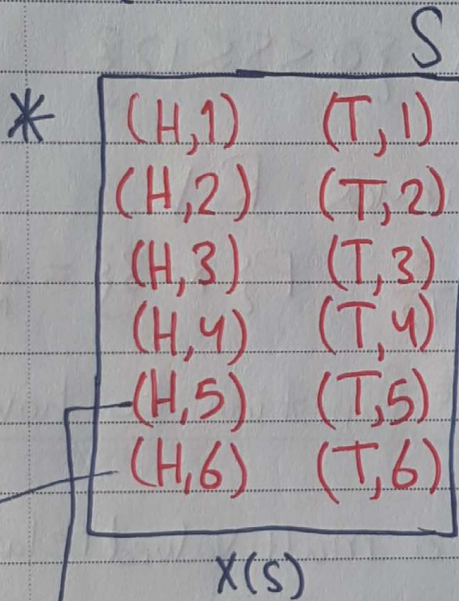 S
* (H,1) (T,1)
(H,2) (T,2)
(H,3) (T,3)
(H,4) (T,4)
(H,5) (T,5)
(H,6) (T,6)
X(S)